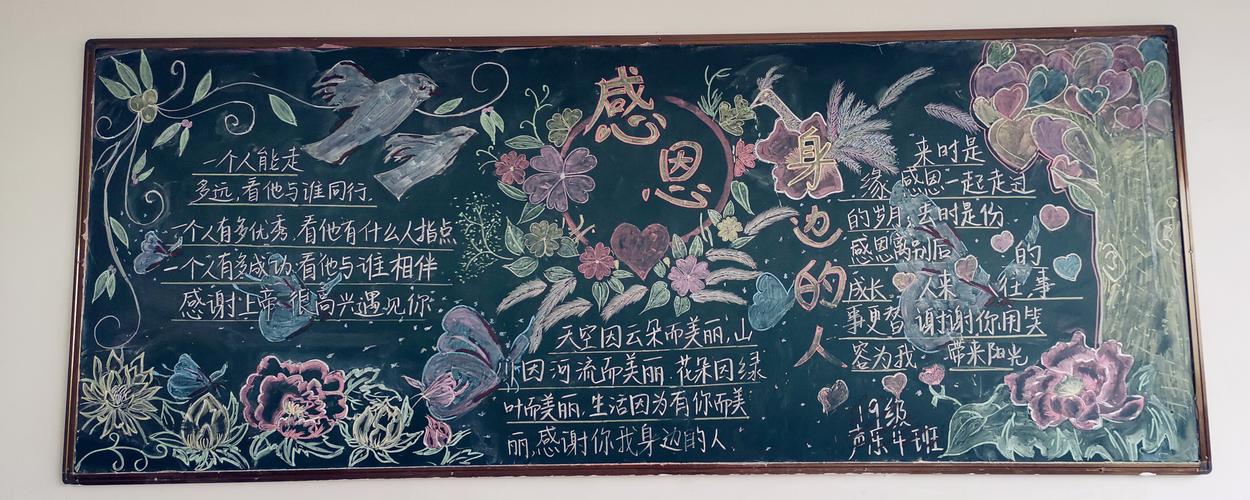 感恩
身边的人
一个人能走
多远,看他与谁同行
一个人有多优秀,看他有什么人指点
一个人有多成功,看他与谁相伴
感谢上帝 很高兴遇见你
天空因云朵而美丽,山
川因河流而美丽,花朵因绿
叶而美丽,生活因为有你而美
丽,感谢你我身边的人
来时是
缘,感恩一起走过
的岁月,去时是份
感恩离别后 的
成长 人来 往,事
事更替 谢谢你用笑
容为我 带来阳光
19级
声乐 班